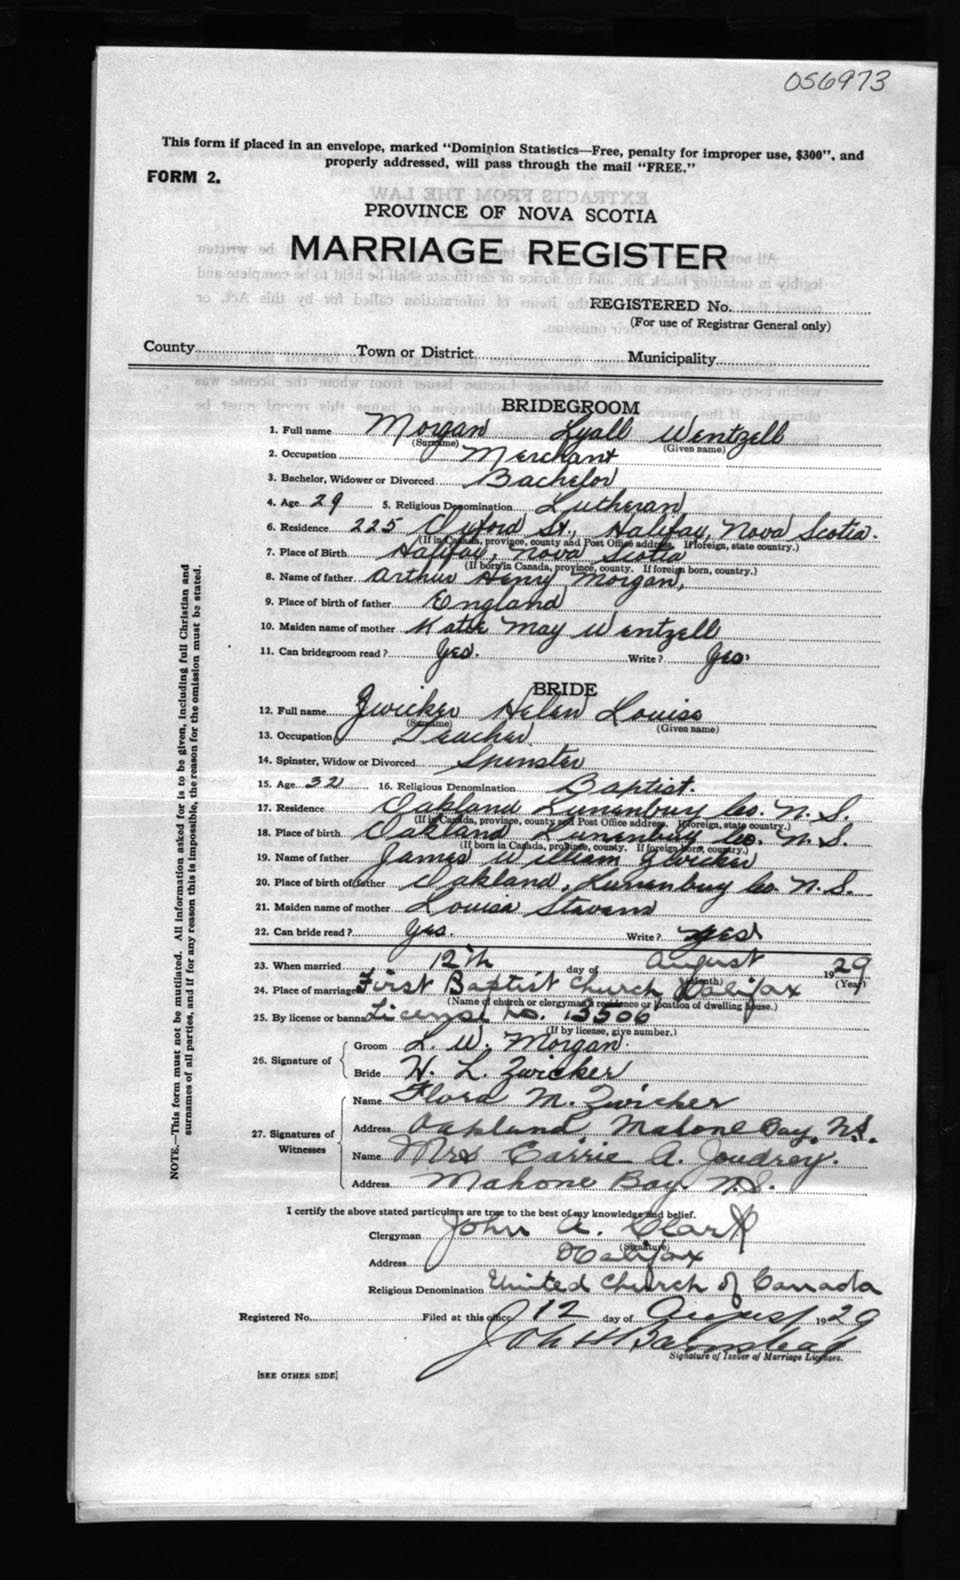 056973
This form if placed in an envelope, marked "Dominion Statistics—Free, penalty for improper use, $300", and
properly addressed, will pass through the mail "FREE."
FORM 2.
PROVINCE OF NOVA SCOTIA
MARRIAGE REGISTER
REGISTERED No.
(For use of Registrar General only)
County Town or District Municipality
BRIDEGROOM
1. Full name Morgan Lyall Wentzell
(Surname) (Given name)
2. Occupation Merchant
3. Bachelor, Widower or Divorced Bachelor
4. Age 29 5. Religious Denomination Lutheran
6. Residence 225 Oxford St., Halifax, Nova Scotia.
(If in Canada, province, county and Post Office address. If foreign, state country.)
7. Place of Birth Halifax, Nova Scotia
(If born in Canada, province, county. If foreign born, country.)
8. Name of father Arthur Henry Morgan,
9. Place of birth of father England
10. Maiden name of mother Katie May Wentzell
11. Can bridegroom read? Yes. Write? Yes.
BRIDE
12. Full name Zwicker Helen Louise
(Surname) (Given name)
13. Occupation Teacher
14. Spinster, Widow or Divorced Spinster
15. Age 32 16. Religious Denomination Baptist.
17. Residence Oakland Lunenburg Co. N.S.
(If in Canada, province, county and Post Office address. If foreign, state country.)
18. Place of birth Oakland Lunenburg Co. N.S.
(If born in Canada, province, county. If foreign born, country.)
19. Name of father James William Zwicker
20. Place of birth of father Oakland, Lunenburg Co. N.S.
21. Maiden name of mother Louisa Stevens
22. Can bride read? Yes. Write? Yes
23. When married 12th day of August 1929
(Month) (Year)
24. Place of marriage First Baptist Church, Halifax
(Name of church or clergyman's residence or location of dwelling house.)
25. By license or banns License No. 13506
(If by license, give number.)
26. Signature of Groom L. W. Morgan.
Bride H. L. Zwicker
27. Signatures of Witnesses Name Flora M. Zwicker
Address Oakland, Mahone Bay, N.S.
Name Mrs Carrie A. Joudrey.
Address Mahone Bay N.S.
I certify the above stated particulars are true to the best of my knowledge and belief.
Clergyman John A. Clark
(Signature)
Address Halifax
Religious Denomination United Church of Canada
Registered No. Filed at this office 12 day of August 1929
Signature of Issuer of Marriage Licenses.
[SEE OTHER SIDE]
NOTE.—This form must not be mutilated. All information asked for is to be given, including full Christian and
surnames of all parties, and if for any reason this is impossible, the reason for the omission must be stated.